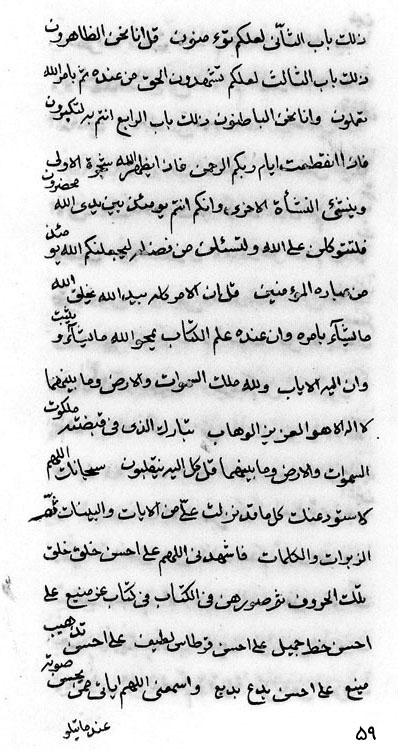 ذلك باب الثاني لعلكم توءمنون قل انا نحن الظاهرون
ذلك باب الثالث لعلكم تشهدون الحق من عنده ثم بامرالله
تعملون وانا نحن الباطنون ذلك باب الرابع انتم به لتكبرون
فاذا انقطعت ايام ربكم الرحمن فاذا يظهرالله شجرة الاولى
وينشئ النشأة الاخرى وانكم انتم يومئذ بين يدي الله محضرون
فلتتوكلن على الله ولتسئلن من فضله ليجعلنكم الله يومئذ
من عباده المؤمنين قل ان الامر كله بيد الله يخلق الله
مايشآء بامره وان عنده علم الكتاب يمحو الله مايشآء ويثبت
وان اليه الاياب ولله ملك السموات والارض وما بينهما
لا اله الا هو العزيز الوهاب تبارك الذي في قبضته ملكوت
السموات والارض وما بينهما قل كل اليه ينقلبون سبحانك اللهم
لاستودعنك كل ما قد نزلت علي من الايات والبينات ثم
الزبرات والكلمات فاشهدني اللهم على احسن خلق خلق
تلك الحروف ثم صورهن في الكتاب في كتاب عز منيع على
احسن خط جميل على احسن قرطاس لطيف على احسن تذهيب
منيع على احسن بديع واسمعني اللهم اياتي بحسن صوته
عند مايتلو
۵۹